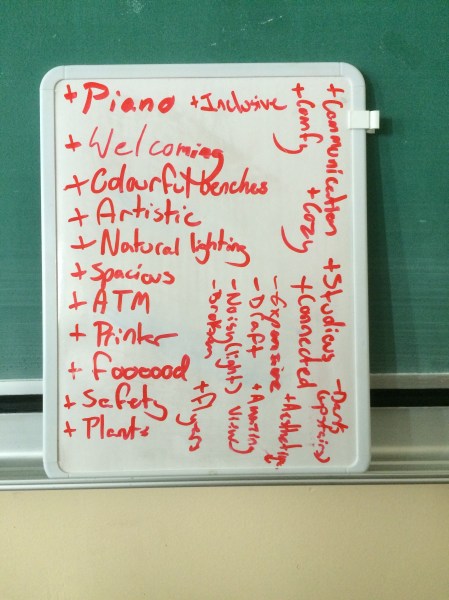 + Piano + Inclusive
+ Welcoming
+ Colourful benches
+ Artistic
+ Natural lighting
+ Spacious
+ ATM
+ Printer
+ Fooooood
+ Safety
+ Plants
+ Communication + Studious - Darts (upstairs)
+ Comfy + Cozy + Connected + Aesthetic
- Expansive + Amazing view
- Draft
- Noisy (lights)
- Broken + Flyers